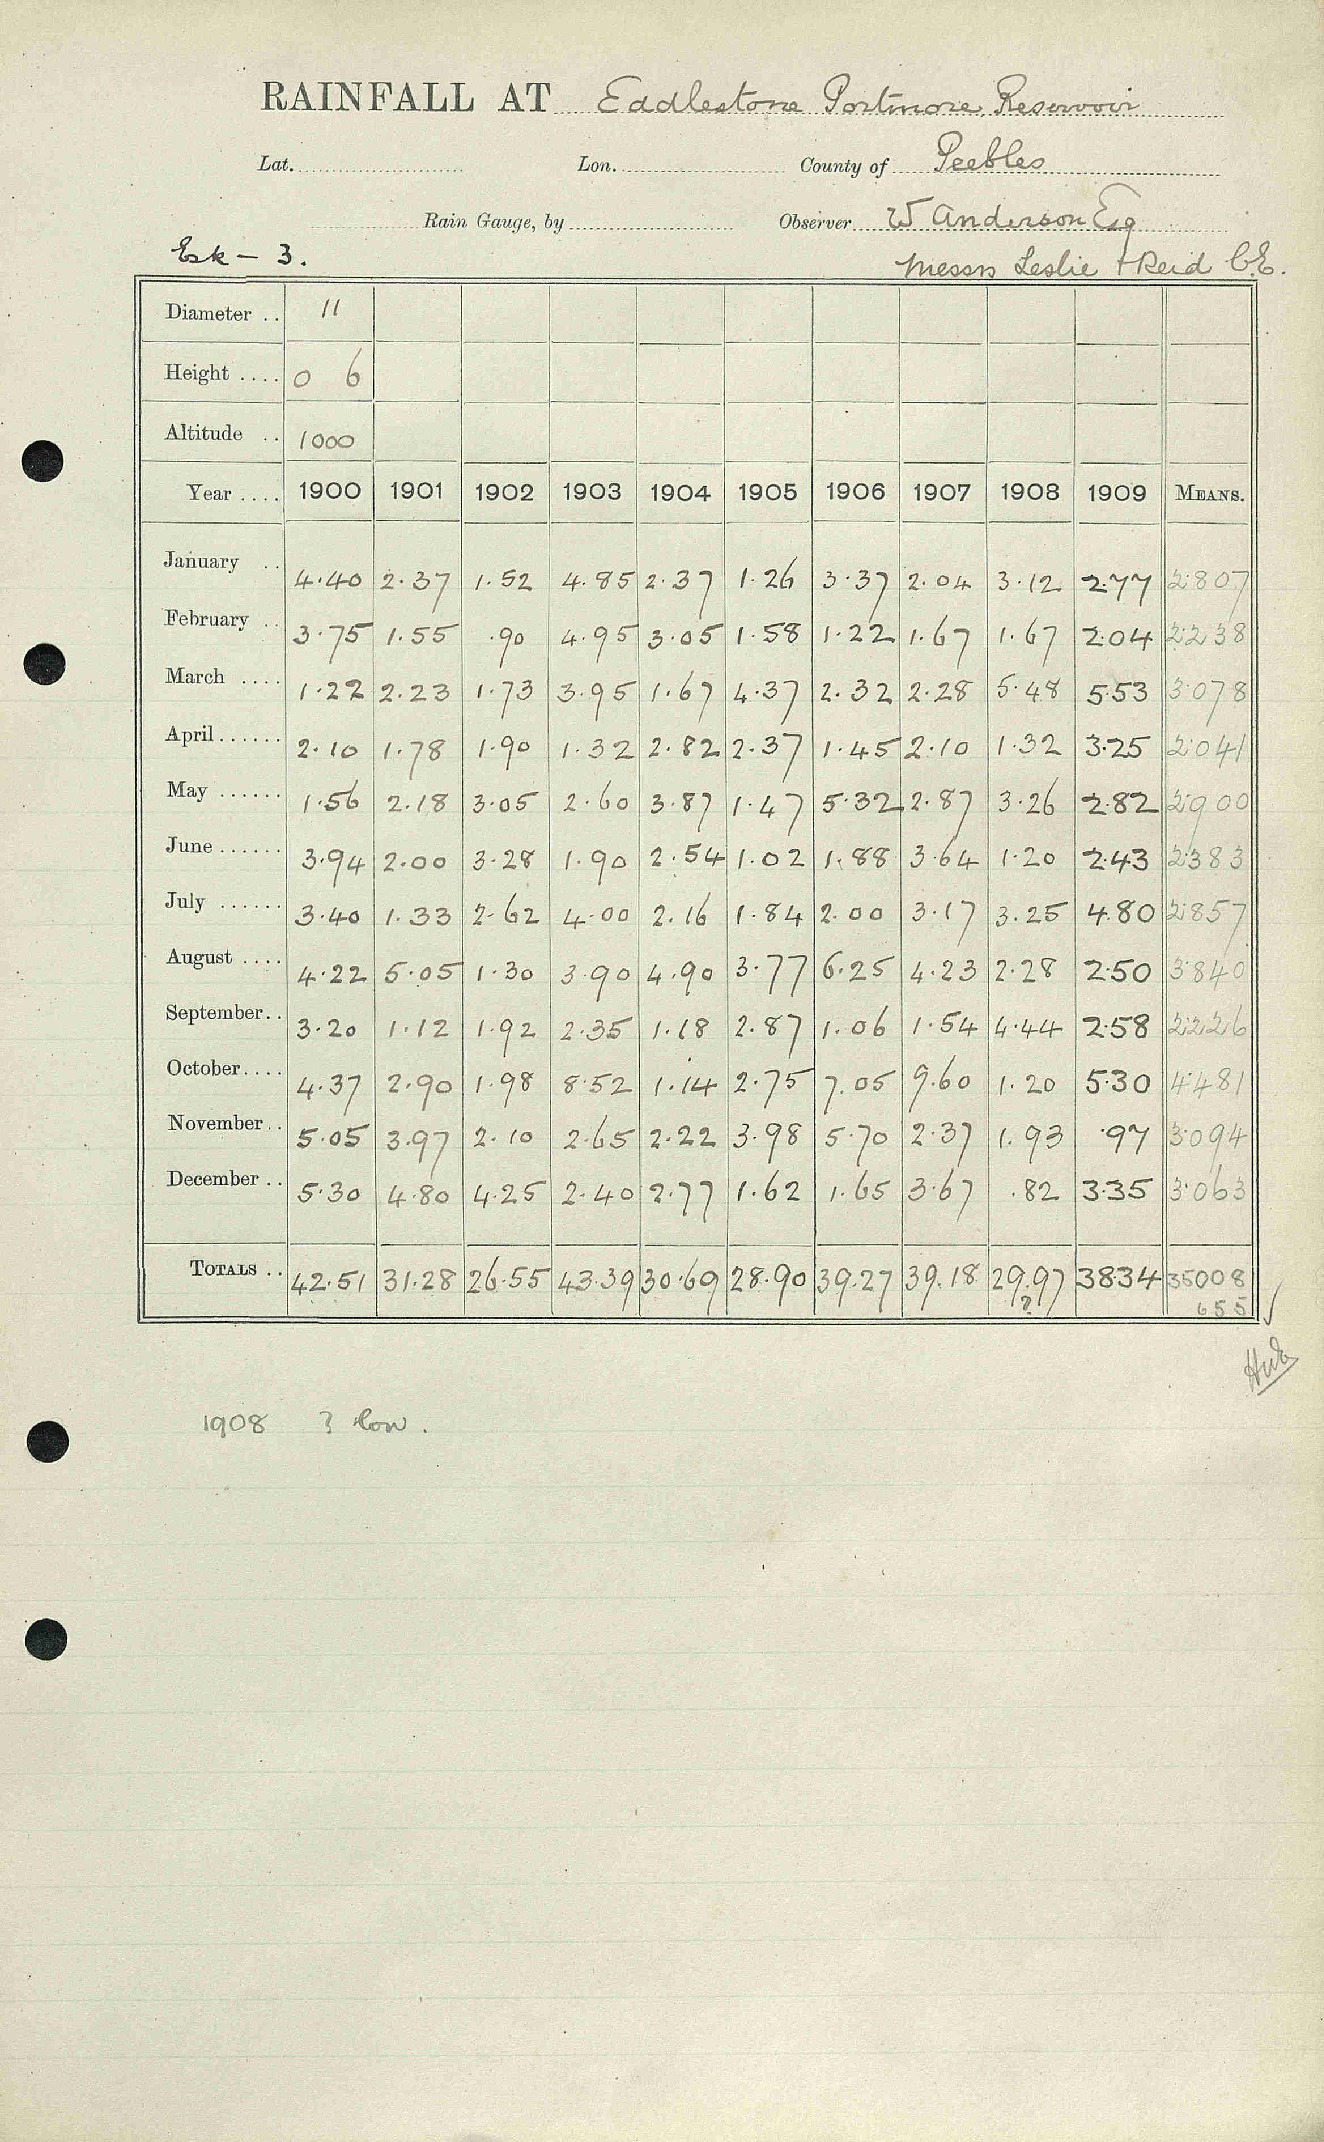 RAINFALL AT Eddlestone Portmore Reservoir
Lat. Lon. County of Peebles
Rain Gauge, by Observer W Anderson Esq
Esk - 3. Messrs Leslie & Reid C.E.
Diameter .. 11
Height .... 0 6
Altitude .. 1000
Year .... 1900 1901 1902 1903 1904 1905 1906 1907 1908 1909 MEANS.
January .. 4.40 2.37 1.52 4.85 2.37 1.26 3.37 2.04 3.12 2.77 2.807
February .. 3.75 1.55 .90 4.95 3.05 1.58 1.22 1.67 1.67 2.04 2.238
March .... 1.22 2.23 1.73 3.95 1.67 4.37 2.32 2.28 5.48 5.53 3.078
April ...... 2.10 1.78 1.90 1.32 2.82 2.37 1.45 2.10 1.32 3.25 2.041
May ...... 1.56 2.18 3.05 2.60 3.87 1.47 5.32 2.87 3.26 2.82 2.900
June ...... 3.94 2.00 3.28 1.90 2.54 1.02 1.88 3.64 1.20 2.43 2.383
July ...... 3.40 1.33 2.62 4.00 2.16 1.84 2.00 3.17 3.25 4.80 2.857
August .... 4.22 5.05 1.30 3.90 4.90 3.77 6.25 4.23 2.28 2.50 3.840
September.. 3.20 1.12 1.92 2.35 1.18 2.87 1.06 1.54 4.44 2.58 2.226
October.... 4.37 2.90 1.98 8.52 1.14 2.75 7.05 9.60 1.20 5.30 4.481
November.. 5.05 3.97 2.10 2.65 2.22 3.98 5.70 2.37 1.93 .97 3.094
December .. 5.30 4.80 4.25 2.40 2.77 1.62 1.65 3.67 .82 3.35 3.063
TOTALS .. 42.51 31.28 26.55 43.39 30.69 28.90 39.27 39.18 29.97 38.34 35008
? 655 ✓
1908 ? low.